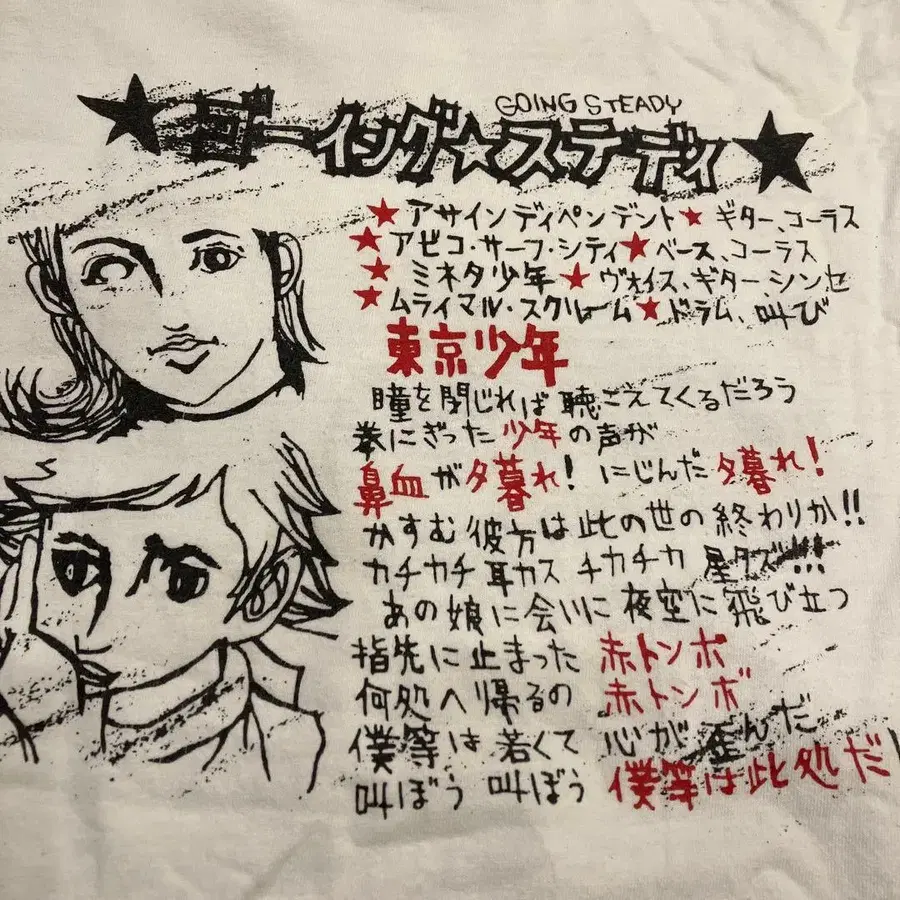 GOING STEADY
★ゴーイング☆ステディ★
★アサインディペンデント★ギター、コーラス
★アビコ・サーフ・シティ★ベース、コーラス
★ミネタ少年★ヴォイス、ギター、シンセ
★ムライマル・スクリーム★ドラム、叫び
東京少年
瞳を閉じれば 聴こえてくるだろう
拳にぎった 少年の声が
鼻血が夕暮れ! にじんだ夕暮れ!
かすむ彼方は此の世の終わりか!!
カチカチ 耳カス チカチカ 星クズ!!!
あの娘に会いに 夜空に飛び立つ
指先に止まった 赤トンボ
何処へ帰るの 赤トンボ
僕等は 若くて 心が 歪んだ
叫ぼう 叫ぼう 僕等は此処だ!